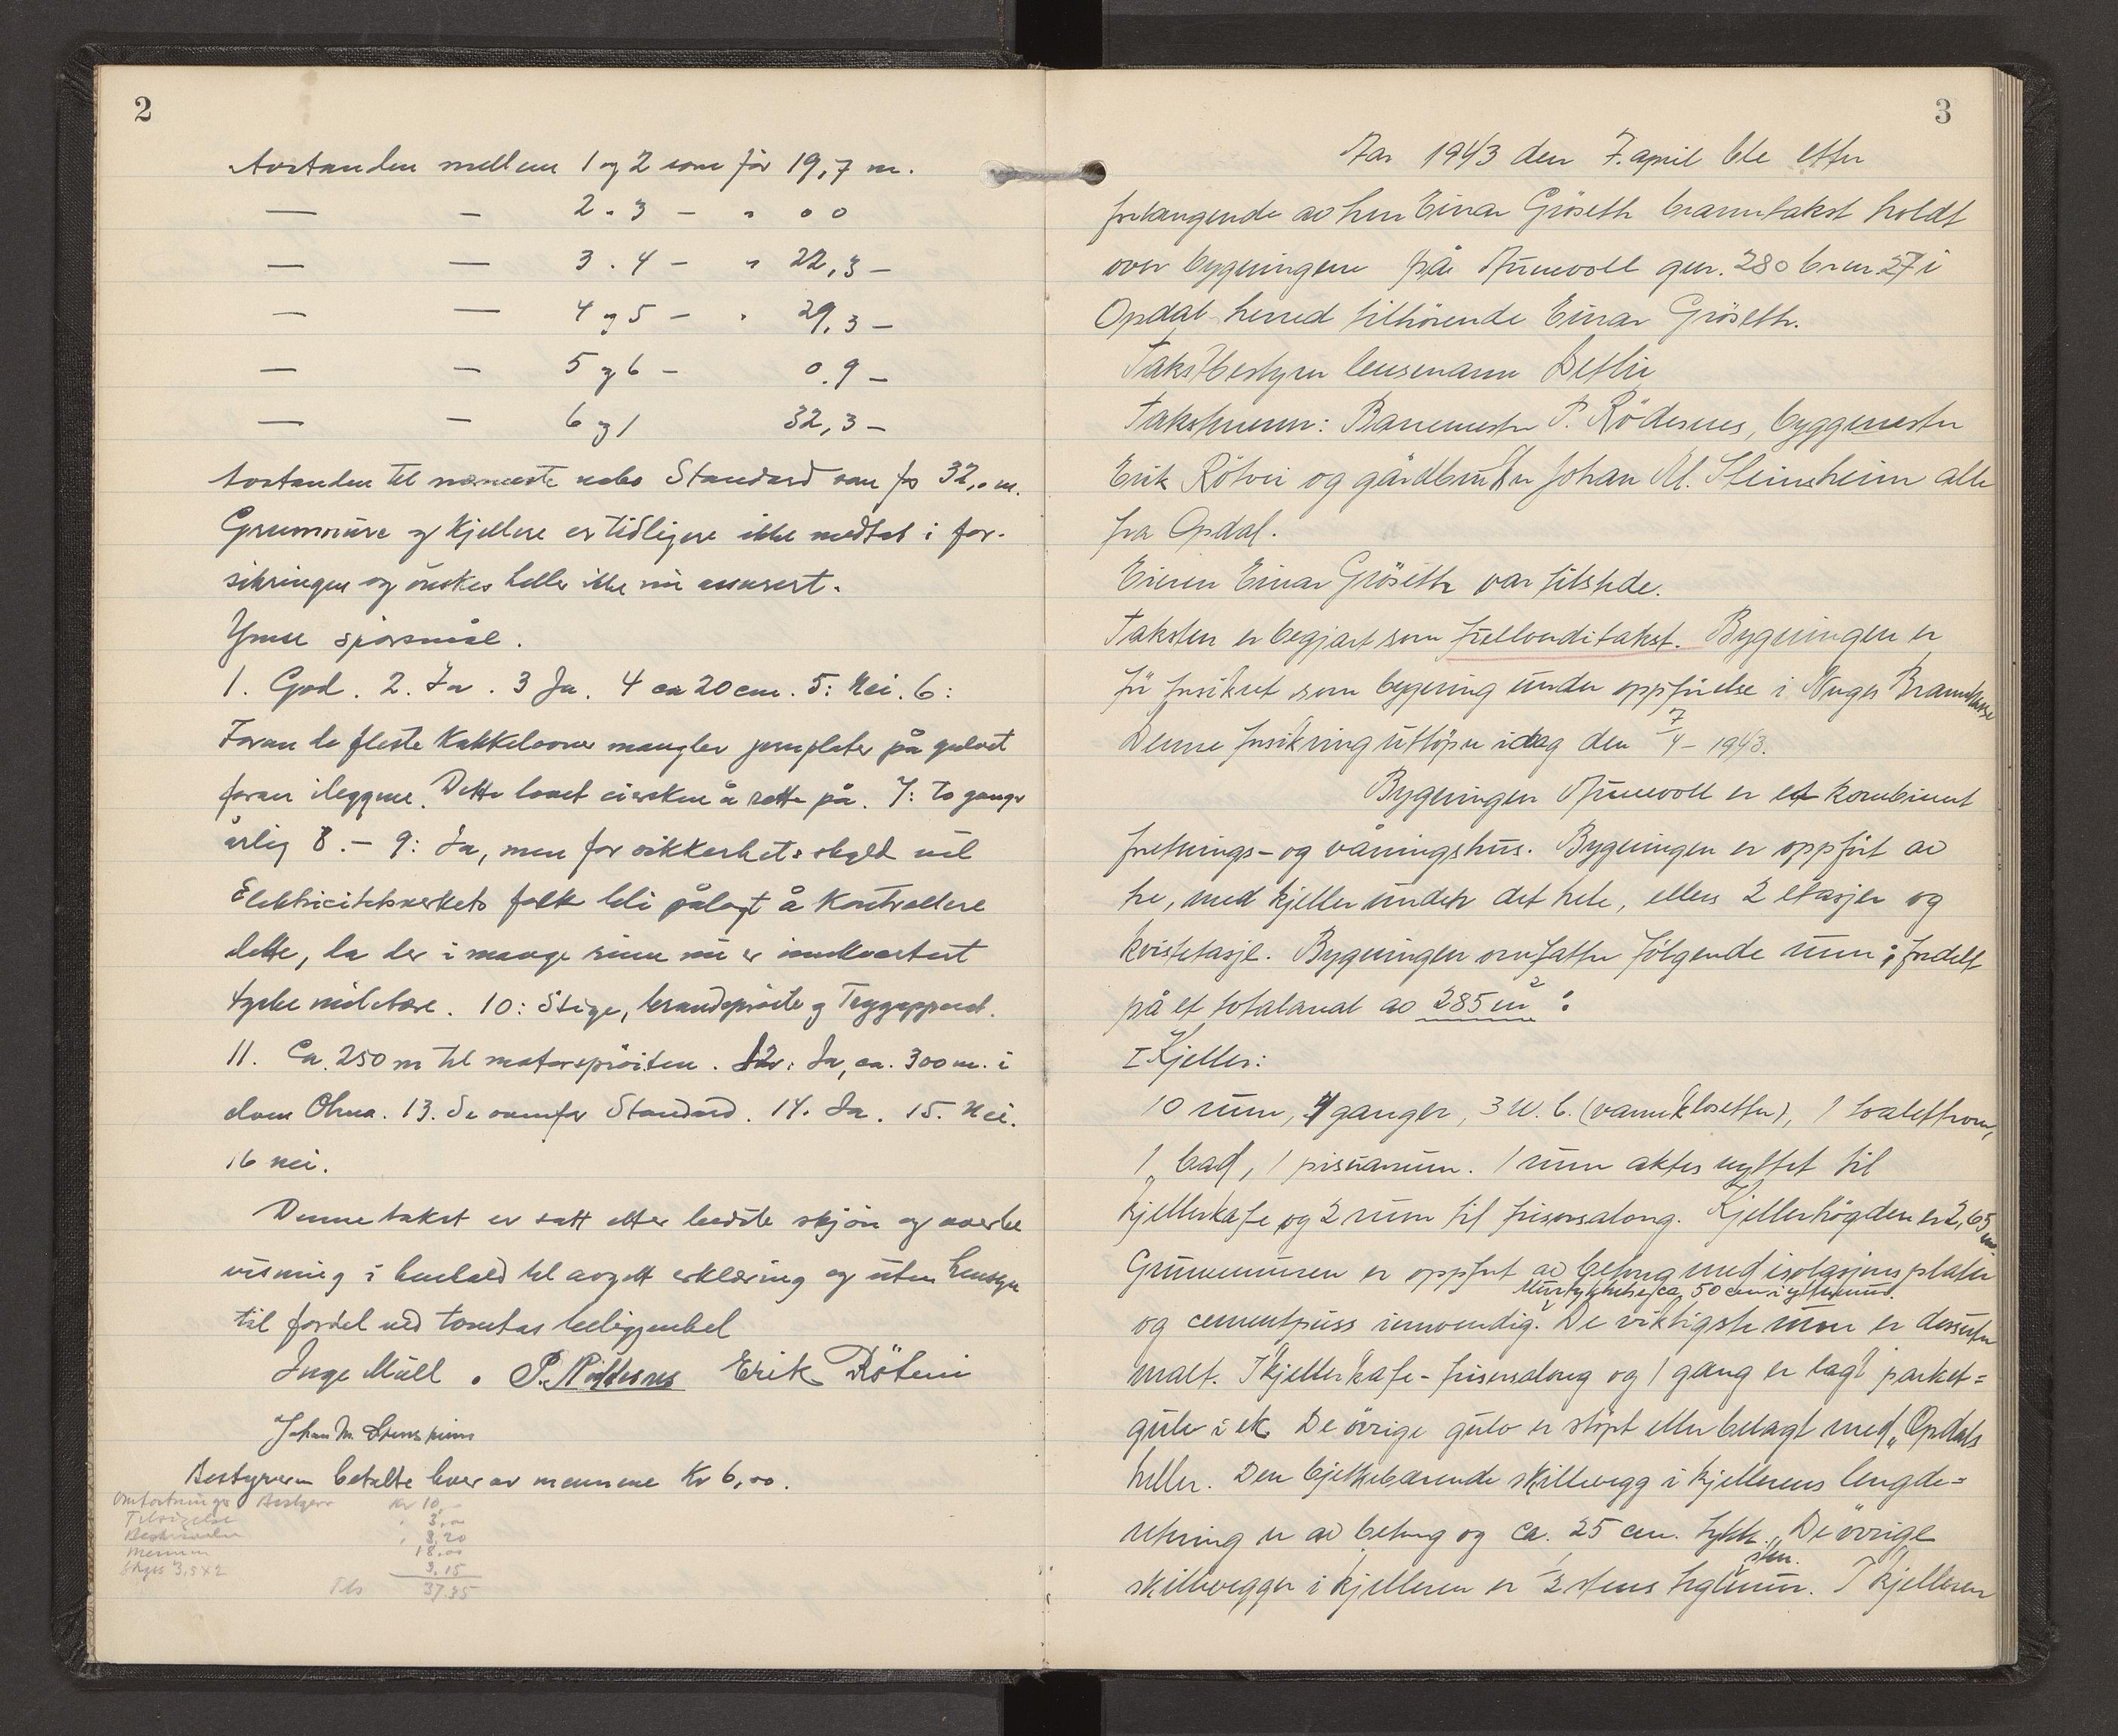 2
Avstanden mellem 1 og 2 som før 19,7 m.
— — 2 " 3 — " 0 0
— — 3 . 4 — " 22,3 —
— — 4 og 5 — " 29,3 —
— — 5 og 6 — 0.9 —
— — 6 og 1 32,3 —
Avstanden til nærmeste nabo Standard som før 32,0 m.
Grunnmure og Kjellere er tidligere ikke medtat i for-
sikringen og ønskes heller ikke nu assurert.
Ymse spørsmål.
1. God. 2. Ja. 3 Ja. 4 ca 20 cm. 5: Nei. 6:
Foran de fleste Kakkelovner mangler jernplater på gulvet
foran ileggene. Dette lovet eierskene å rette på. 7: To ganger
årlig 8. — 9: Ja, men for sikkerhets skyld vil
Elektricitetsverkets folk bli pålagt å Kontrollere
dette, da der i mange rum nu er innkvartert
tyske militære. 10: Stige, brandsprøite og Trygapparat.
11. Ca. 250 m til motorsprøiten. 12: Ja, ca. 300 m. i
elven Olma. 13. Se ovenfor Standard. 14. Ja. 15. Nei.
16 nei.
Denne takst er satt etter bedste skjøn og overbe
visning i henhold til avgitt erklæring og uten hensyn
til fordel ved tomtens beliggenhet
Inge Müll . P. Rødesnes Erik Rötvei
Johan M. Stensheim
Bestyreren betalte hver av mennene Kr 6,00.
Omfortnings Bestyrer Kr 10,-
Tilsigelse " 3,00
" 3,20
Mennene 18,00
Skyss 3,5 x 2 3,15
Tils 37.35
3
Aar 1943 den 7. april ble etter
forlangende av herr Einar Gröseth branntakst holdt
over bygningene på Aunevoll gnr. 280 brnr. 27 i
Opdal herred tilhörende Einar Gröseth.
Takstbestyrer lensmann Detlie
Takstmenn: Banemester P. Rödesnes, byggmester
Erik Rötvei og gårdbruker Johan M. Steinsheim alle
fra Opdal.
Eieren Einar Gröseth var tilstede.
Taksten er begjært som fullverditakst. Bygningen er
för forsikret som bygning under oppförelse i Norges Brannkasse
Denne forsikring utlöper idag den 7/4 - 1943.
Bygningen Aunevoll er et kombinert
forretnings- og våningshus. Bygningen er oppfört av
tre, med kjeller under det hele, ellers 2 etasjer og
kvistetasje. Bygningen omfatter følgende rum: fordelt
på et totalareal av 285 m²:
I Kjeller:
10 rum, 4 ganger, 3 W.C. (vannklosetter), 1 toalettrom,
1 bad, 1 pissuarrum. 1 rum aktes nyttet til
kjellerkafe og 2 rum til frisørsalong. Kjellerhögden er 2,65 m.
Grunnmuren er oppfört av betong med isolasjonsplater
Murtykkelse ca. 50 cm i yttermur.
og cementpuss innvendig. De viktigste rum er dessuten
malt. I kjellerkafe - frisørsalong og 1 gang er lagt parket=
gulv i ek. De övrige gulv er stöpt eller belagt med "Opdals
heller. Den bjelkebærende skillevegg i kjellerens lengde=
retning er av betong og ca. 25 cm. tykk. De övrige
skillevegger i kjelleren er 1/2 stens teglstenmur. I kjelleren